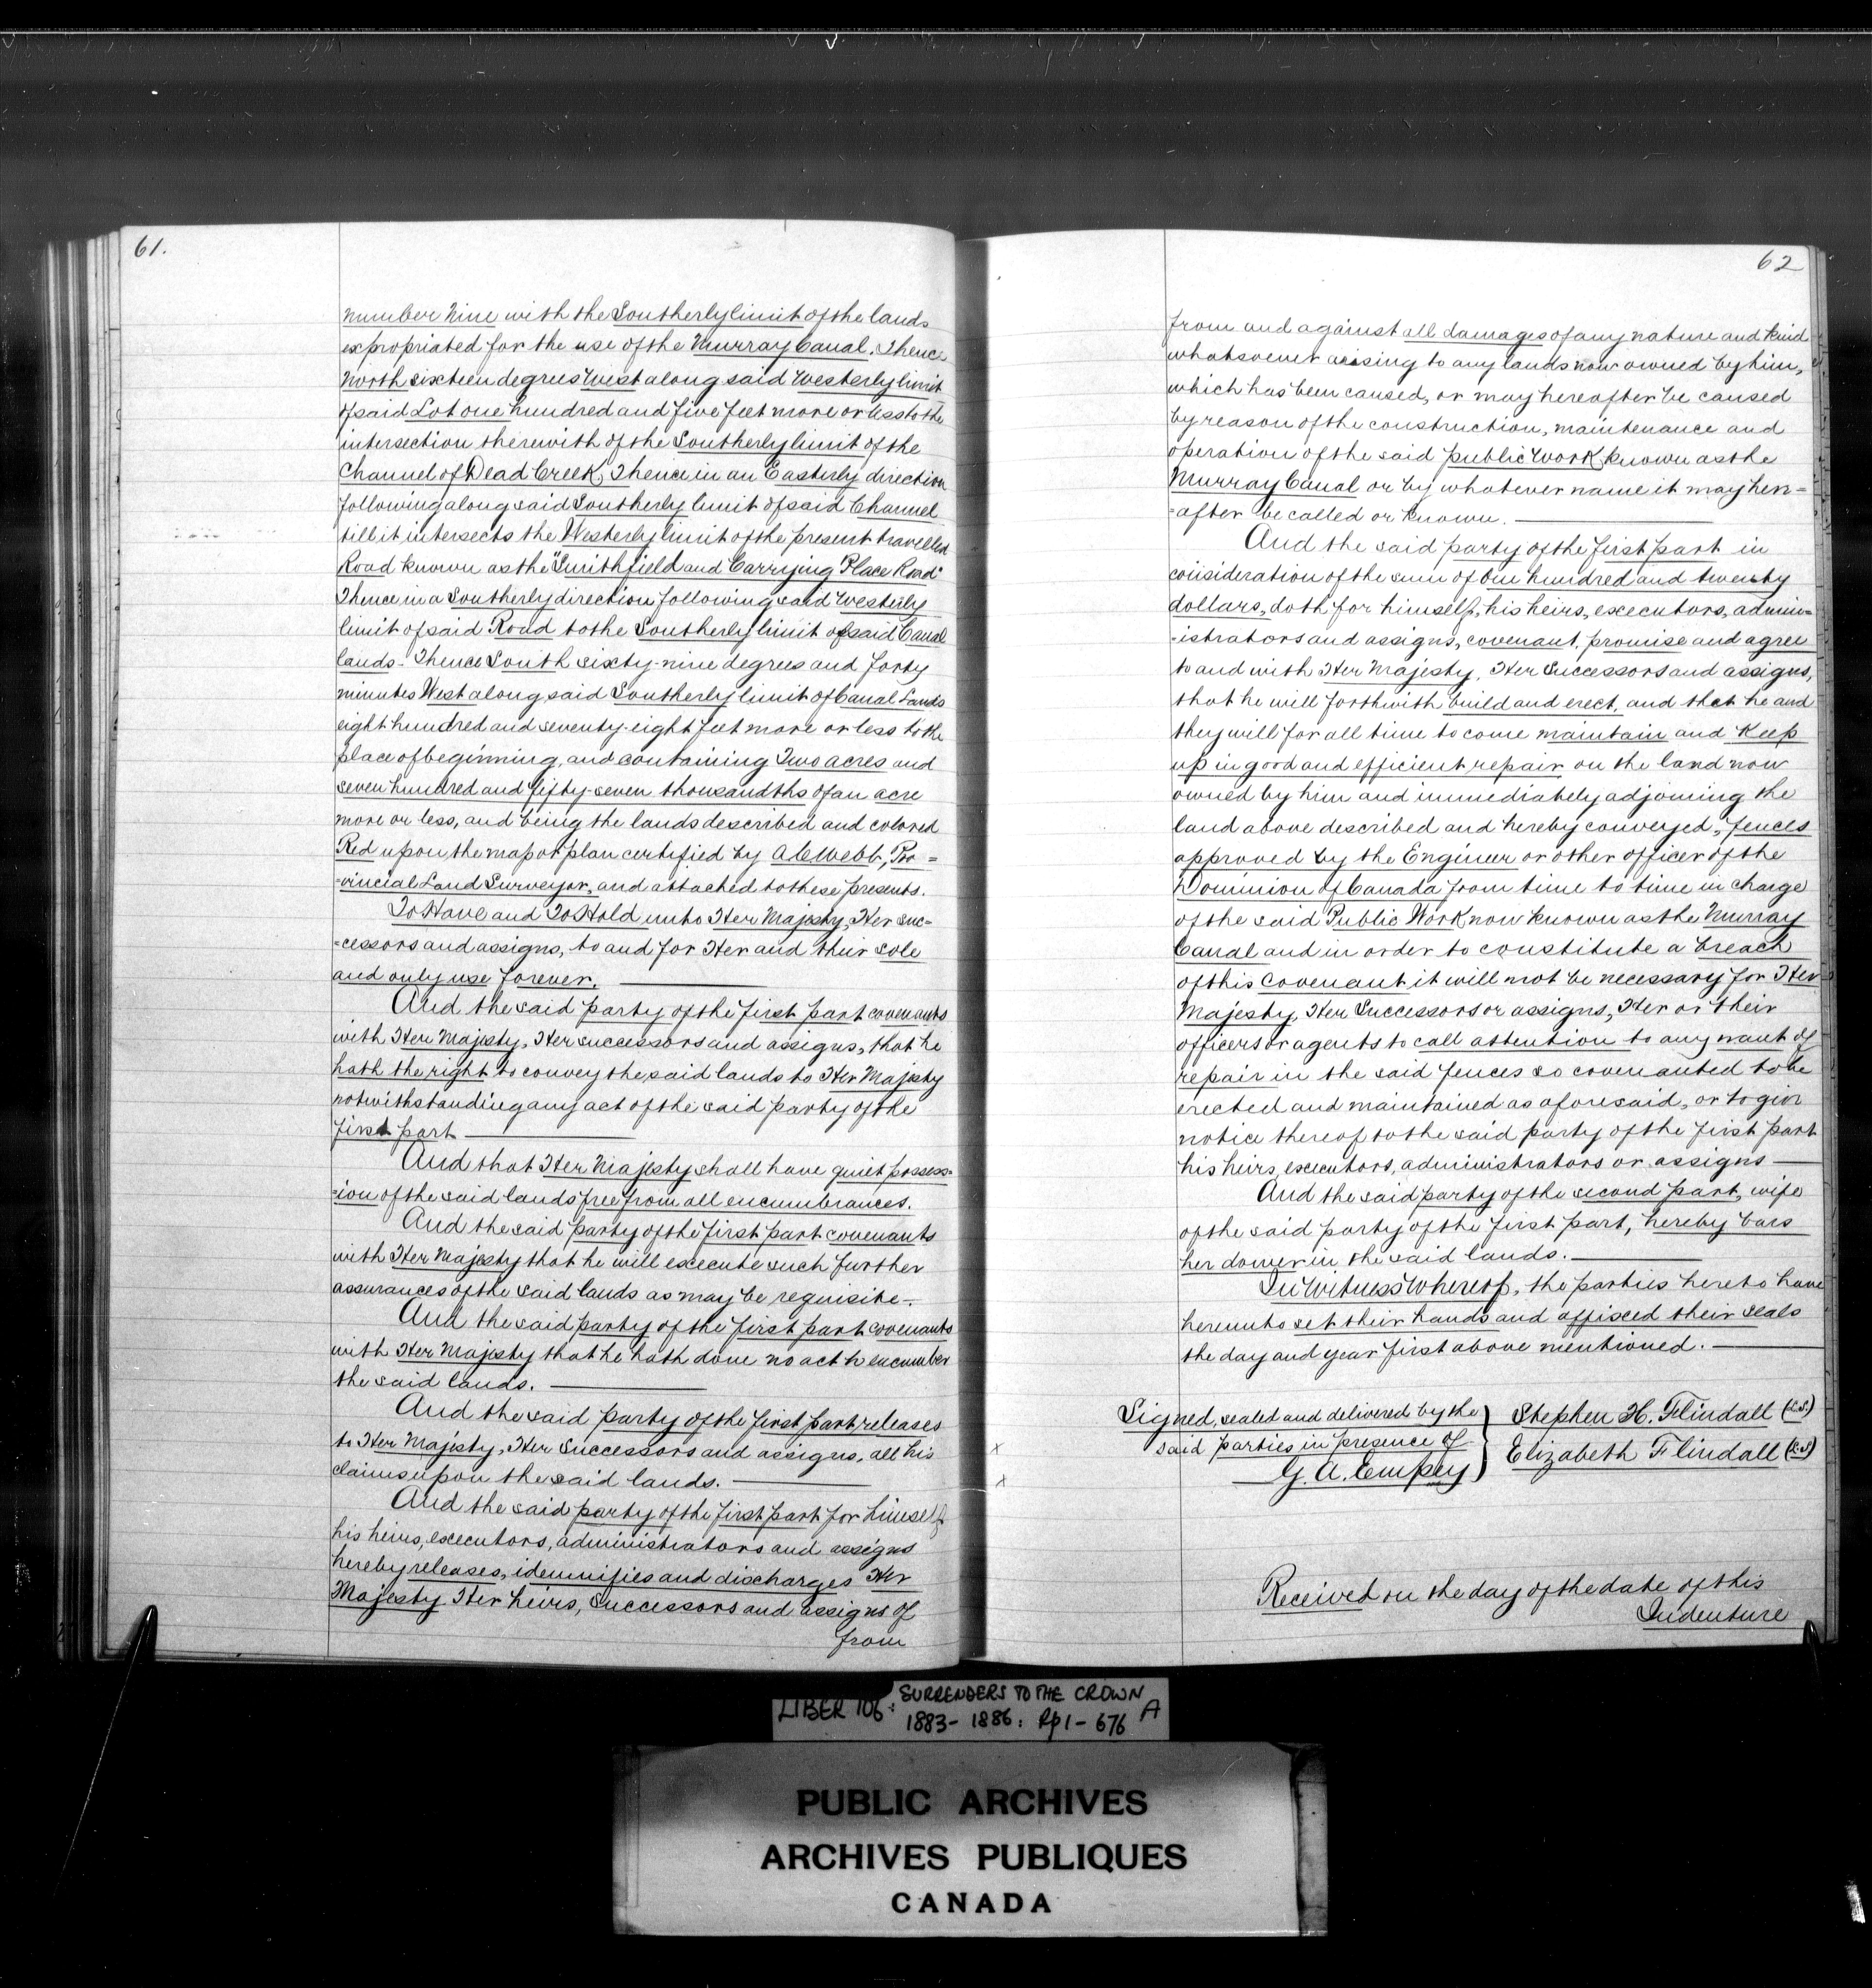 61.
number Nine with the Southerly limit of the lands
expropriated for the use of the Murray Canal. Thence
North sixteen degrees West along said Westerly limit
of said Lot one hundred and five feet more or less to the
intersection therewith of the Southerly limit of the
Channel of Dead Creek, Thence in an Easterly direction
following along said Southerly limit of said Channel
till it intersects the Westerly limit of the present travelled
Road known as the "Smithfield and Carrying Place Road"
Thence in a Southerly direction following said Westerly
limit of said Road to the Southerly limit of said Canal
lands - Thence South sixty-nine degrees and forty
minutes West along said Southerly limit of Canal Lands
eight hundred and seventy-eight feet more or less to the
place of beginning, and containing Two acres and
seven hundred and fifty-seven thousandths of an acre
more or less, and being the lands described and colored
Red upon the map or plan certified by A C Webb, Pro =
=vincial Land Surveyor, and attached to these presents.
To Have and To Hold unto Her Majesty, Her suc=
=cessors and assigns, to and for Her and their sole
and only use forever.
And the said party of the first part covenants
with Her Majesty, Her successors and assigns, that he
hath the right to convey the said lands to Her Majesty
notwithstanding any act of the said party of the
first part
And that Her Majesty shall have quiet possess=
=ion of the said lands free from all encumbrances.
And the said party of the first part covenants
with Her Majesty that he will execute such further
assurances of the said lands as may be requisite.
And the said party of the first part covenants
with Her Majesty that he hath done no act to encumber
the said lands.
And the said party of the first part, releases
to Her Majesty, Her Successors and assigns, all his
claims upon the said lands.
And the said party of the first part for himself
his heirs, executors, administrators and assigns
hereby releases, idemnifies and discharges Her
Majesty Her heirs, Successors and assigns of
from
62
from and against all damages of any nature and kind
whatsoever arising to any lands now owned by him,
which has been caused, or may hereafter be caused
by reason of the construction, maintenance and
operation of the said public work, known as the
Murray Canal or by whatever name it may hen=
=after be called or known.
And the said party of the first part in
consideration of the sum of One hundred and twenty
dollars, doth for himself, his heirs, executors, admin=
=istrators and assigns, covenant, promise and agree
to and with Her Majesty, Her Successors and assigns,
that he will forthwith build and erect, and that he and
they will for all time to come maintain and Keep
up in good and efficient repair on the land now
owned by him and immediately adjoining the
land above described and hereby conveyed, fences
approved by the Engineer or other officer of the
Dominion of Canada from time to time in charge
of the said Public Work now known as the Murray
Canal and in order to constitute a breach
of this Covenant it will not be necessary for Her
Majesty, Her Successors or assigns, Her or their
officers or agents to call attention to any want of
repair in the said fences so covenanted to be
erected and maintained as aforesaid, or to give
notice thereof to the said party of the first part
his heirs, executors, administrators or assigns
And the said party of the second part, wife
of the said party of the first part, hereby bars
her dower in the said lands.
In Witness Whereof, the parties hereto have
hereunto set their hands and affixed their seals
the day and year first above mentioned.
Signed, sealed and delivered by the
said parties in presence of
G. A. Empey
Stephen H. Flindall (L.S.)
Elizabeth Flindall (L.S)
Received on the day of the date of this
Indenture
LIBER 106: SURRENDERS TO THE CROWN
1883-1886: Pp 1-676 A
PUBLIC ARCHIVES
ARCHIVES PUBLIQUES
CANADA